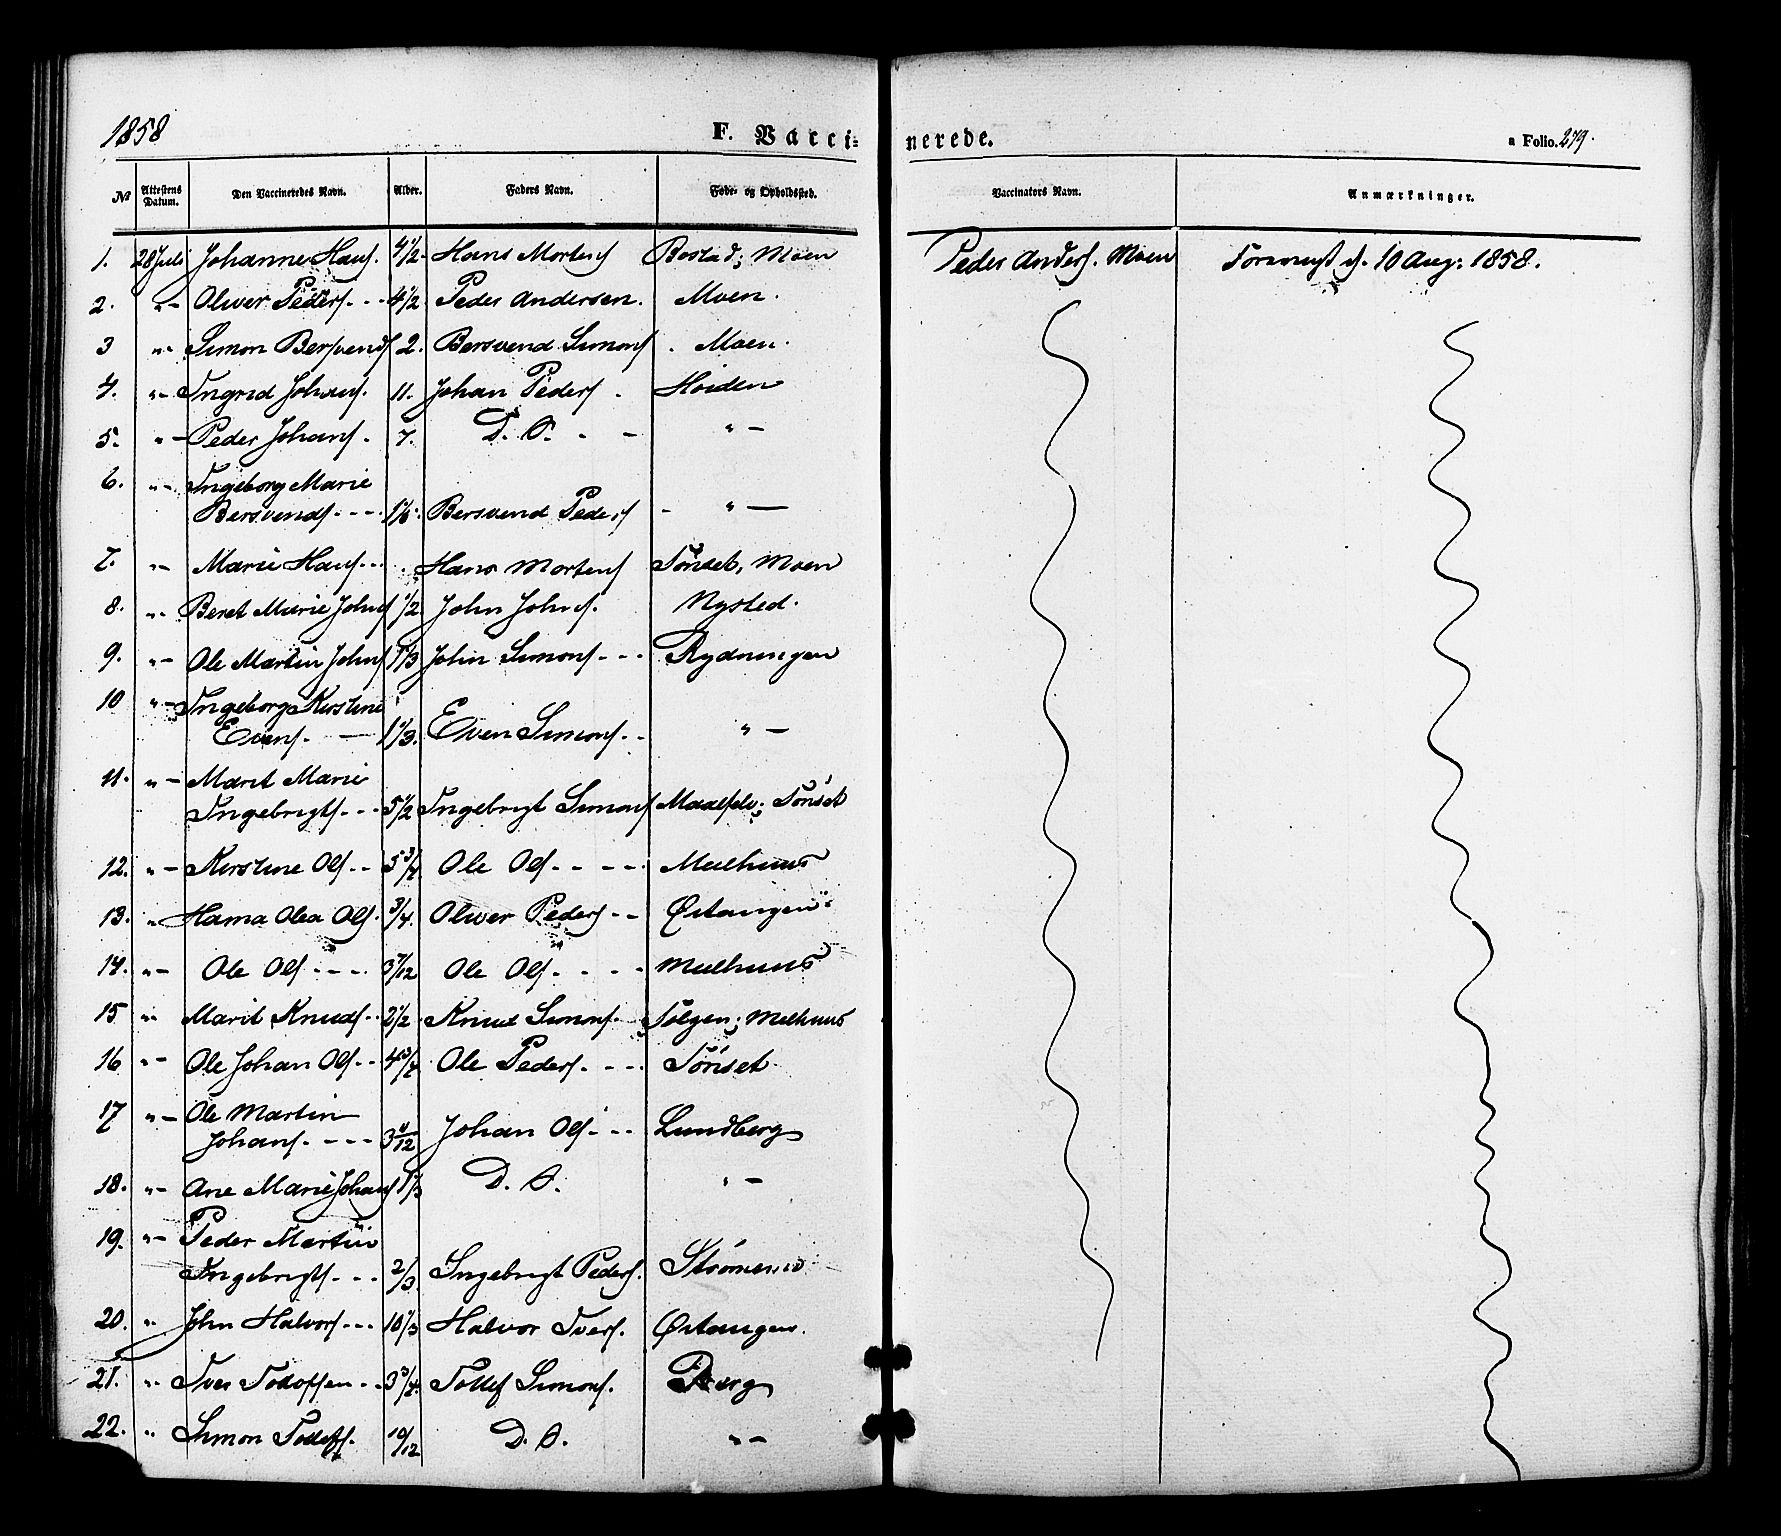 1858
F. Vacci-nerede.
a Folio. 279.
№ Attestens Datum. Den Vaccineredes Navn. Alder. Faders Navn. Føde- og Opholdssted. Vaccinators Navn. Anmærkninger.
1. 28 Juli Johanne Hans. 4 1/2. Hans Mortens Bostad; Moen Peder Anders. Moen 10 Aug: 1858.
2. "- Oliver Peders. - - 4 1/2 Peder Andersen. Moen.
3 "- Simon Bersvends 2. Bersvend Simons . Moen.
4. "- Ingrid Johans. 11. Johan Peders .
5. "- Peder Johans. 7. D. O. - - "-
6. "- Ingeborg Marie
Bersvends. - - - Bersvend Peders - "-
7. "- Marie Hans. - - Hans Mortens Tønset, Moen
8. "- Beret Marie Johns 1/2 John Johns. Nysted.
9. "- Ole Martin Johns 1 1/3 John Simons. - - Rydningen
10 "- Ingeborg Kirstine
Evens. - 1 1/3. Even Simons. - "-
11. "- Marit Marie
Ingebrigts. - - 5 1/2 Ingebrigt Simons Maalselv; Tønset
12. "- Kirstine Ols. - - 5 3/4 Ole Ols. - - - - Melhuus
13. " Hanna Olea Ols. 3/4. Oliver Peders. - - Ørtangen
14. "- Ole Ols. - - - 3 7/12 Ole Ols. - - - - Melhuus
15 "- Marit Knuds. - - 2 1/2 Knud Simons. Tolgen; Melhuus
16 "- Ole Johan Ols. - - 4 3/4 Ole Peders. - - - Tønset
17 "- Ole Martin
Johans. - - - 3 11/12 Johan Ols. - - Lundberg
18. "- Ane Marie Johans 1 1/3 D. O. "-
19. "- Peder Martin
Ingebrigts. - - - 2/3 Ingebrigt Peders. Strømmen
20. " John Halvors. - - 10 1/3 Halvor Ivers. Ørtangen.
21. " Iver Tollefsen. - 3 3/4. Tollef Simons. Berg
22. " Simon Tollefs. 10/12 D. O. "-